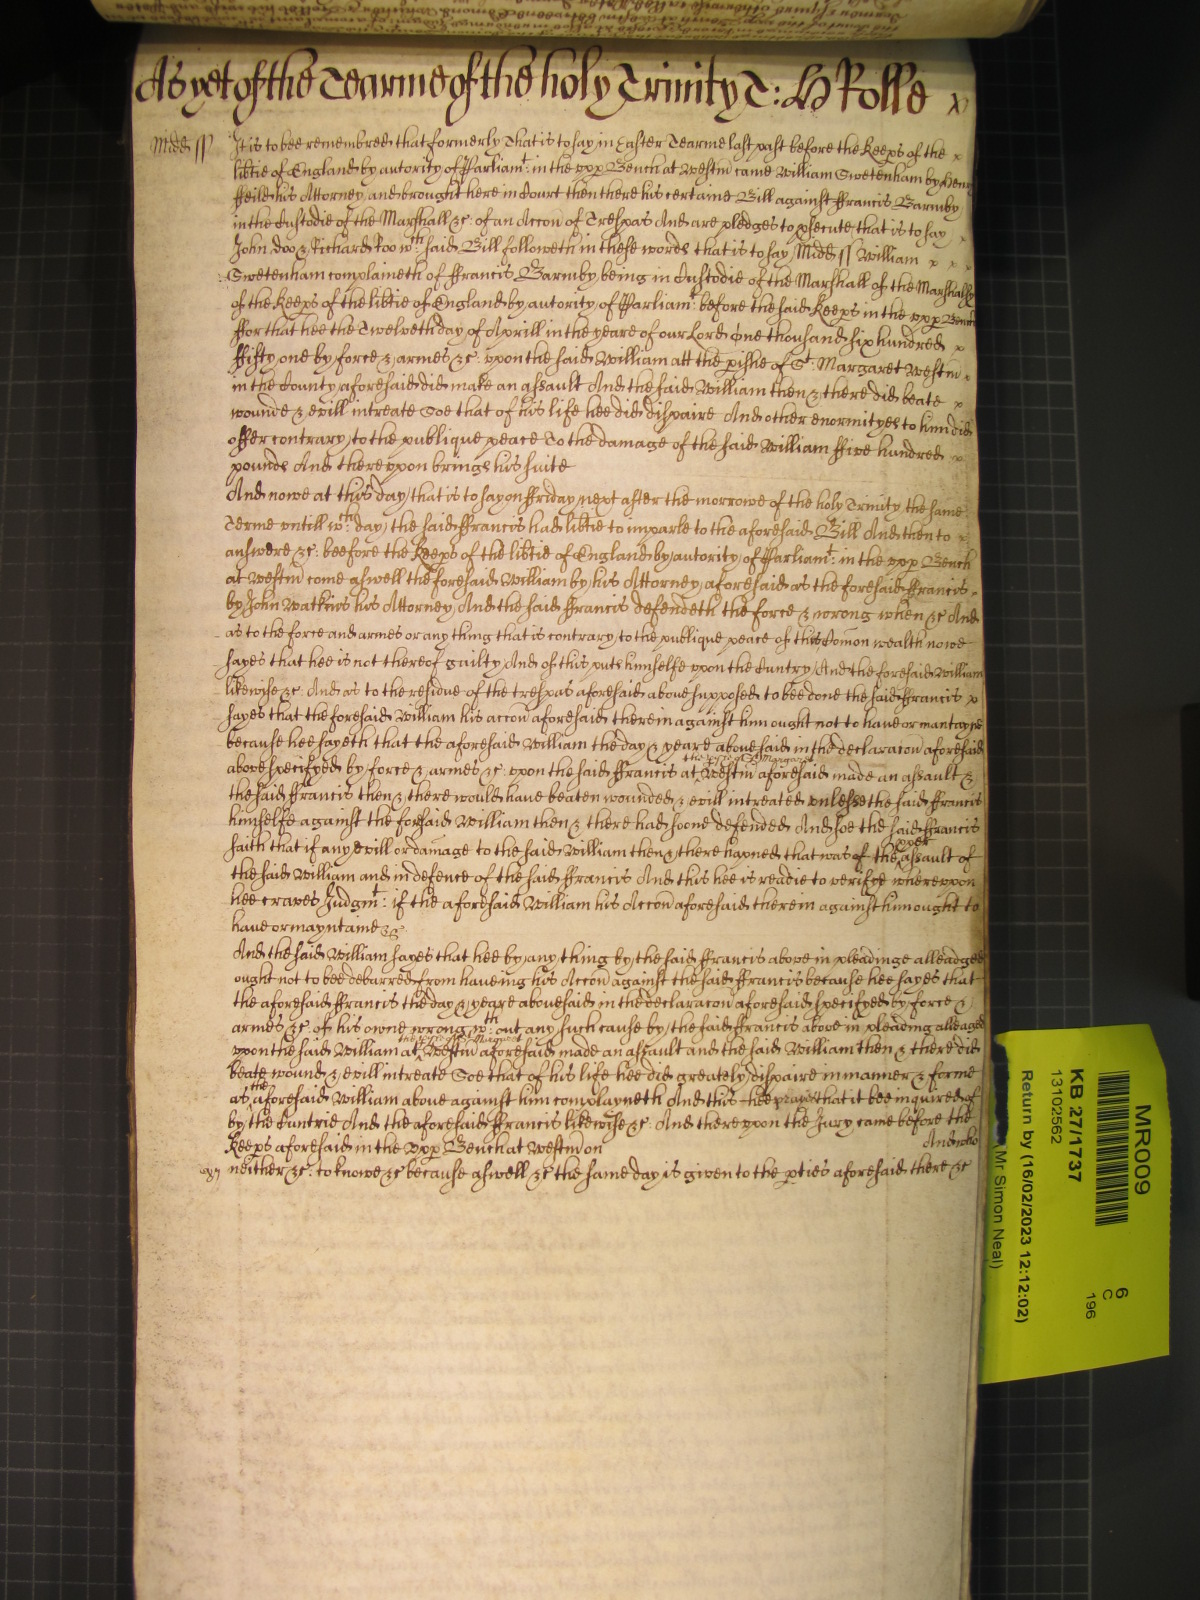 As yet of the Tearme of the holy Trinity T: H Rolle
Midd ss It is to bee remembred that formerly That is to say in Easter Tearme last past before the Keeps of the
libtie of England by autority of Parliamt: in the vpp Bench at Westm came William Swetenham by Henry
ffeild his Attorney and brought here in Court then there his certaine Bill against ffrancis Barmby
in the Custodie of the Marshall &c: of an Accon of Trespas And are pledges to psecute that is to say
John Doo & Richard Roo wth: said Bill followeth in these words that is to say Midd ss William
Swetenham complaineth of ffrancis Barmby being in Custodie of the Marshall of the Marshalsy
of the Keeps of the libtie of England by autority of Parliamt: before the said Keeps in the vpp Bench
ffor that hee the Twelveth day of Aprill in the yeare of our Lord One thousand six hundred
ffifty one by force & armes &c: vpon the said William att the pishe of St: Margaret Westm
in the County aforesaid did make an assault And the said William then & there did beate
wounde & evill intreate Soe that of his life hee did dispaire And other enormityes to him did
offer contrary to the publique peace To the damage of the said William ffive hundred
pounds And therevpon brings his suite
And nowe at this day that is to say on ffriday next after the morrowe of the holy Trinity the same
Terme vntill wch: day the said ffrancis had libtie to imparle to the aforesaid Bill And then to
answere &c: beefore the Keeps of the libtie of England by autority of Parliamt: in the vpp Bench
at Westm come aswell the foresaid William by his Attorney aforesaid as the foresaid ffrancis
by John Watkins his Attorney And the said ffrancis defendeth the force & wrong when &c And
as to the force and armes or any thing that is contrary to the publique peace of this Comon wealth nowe
sayes that hee is not thereof guilty And of this puts himselfe vpon the Cuntry And the foresaid William
likewise &c: And as to the residue of the trespas aforesaid above supposed to bee done the said ffrancis
sayes that the foresaid William his accon aforesaid therein against him ought not to have or mantayne
because hee sayeth that the aforesaid William the day & yeare abovesaid in the declaracon aforesaid
above specifyed by force & armes &c: vpon the said ffrancis at the pishe of St Margaret Westm aforesaid made an assault &
the said ffrancis then & there would have beaten wounded & evill intreated vnlesse the said ffrancis
himselfe against the foresaid William then & there had soone defended And soe the said ffrancis
saith that if any evill or damage to the said William then & there hapned that was of the pper assault of
the said William and in defence of the said ffrancis And this hee is readie to verifye wherevpon
hee craves Judgmt: if the aforesaid William his Accon aforesaid therein against him ought to
have or mayntaine &c
And the said William sayes that hee by any thing by the said ffrancis above in pleadinge alleadged
ought not to bee debarred from haveing his Accon against the said ffrancis because hee sayes that
the aforesaid ffrancis the day & yeare abovesaid in the declaracon aforesaid specifyed by force &
armes &c: of his owne wrong wth: out any such cause by the said ffrancis above in pleading alleaged
vpon the said William at the pishe of St Margaret Westm aforesaid made an assault and the said William then & there did
beate wound & evill intreate Soe that of his life hee did greately dispaire in manner & forme
as the aforesaid William above against him complayneth And this hee prayes that it bee inquired of
by the Cuntrie And the aforesaid ffrancis likewise &c: And therevpon the Jury came before the
Keeps aforesaid in the vpp Bench at Westm on And who
neither &c: to knowe &c because aswell &c the same day is given to the pties aforesaid there &c
MR009
6
C
196
KB 27/1737
13102562
Return by (16/02/2023 12:12:02)
Mr Simon Neal)